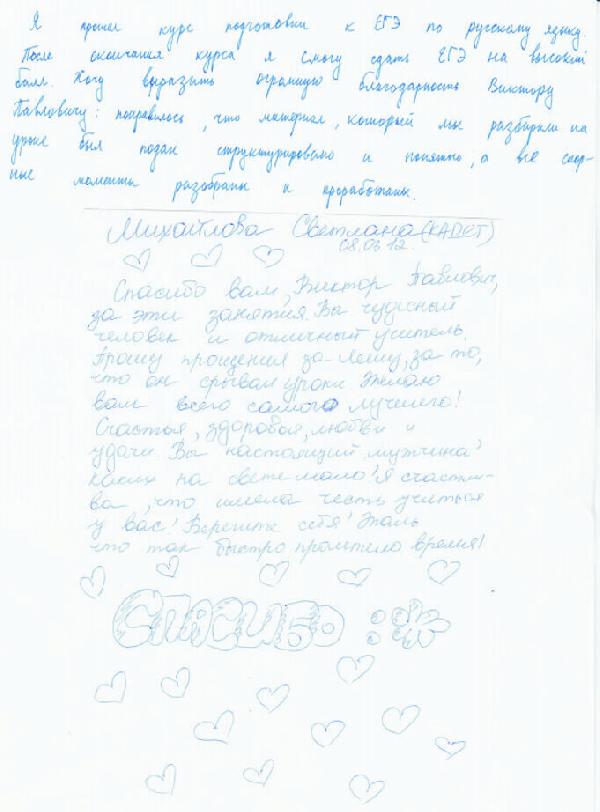 Я прошел курс подготовки к ЕГЭ по русскому языку.
После окончания курса я смогу сдать ЕГЭ на высокий
балл. Хочу выразить огромную благодарность Виктору
Павловичу: понравилось, что материал, который мы разбирали на
уроке был подан структурировано и понятно, а все спор-
ные моменты разобраны и проработаны.
Михайлова Светлана (КАДЕТ)
08.06.12.
Спасибо вам, Виктор Павлович,
за эти занятия. Вы чудесный
человек и отличный учитель.
Прошу прощения за Лёшу, за то,
что он срывал уроки. Желаю
вам всего самого лучшего!
Счастья, здоровья, любви и
удачи. Вы настоящий мужчина!
каких на свете мало! Я счастли-
ва, что имела честь учиться
у вас! Берегите себя! Жаль
что так быстро пролетело время!
СПАСИБО :*